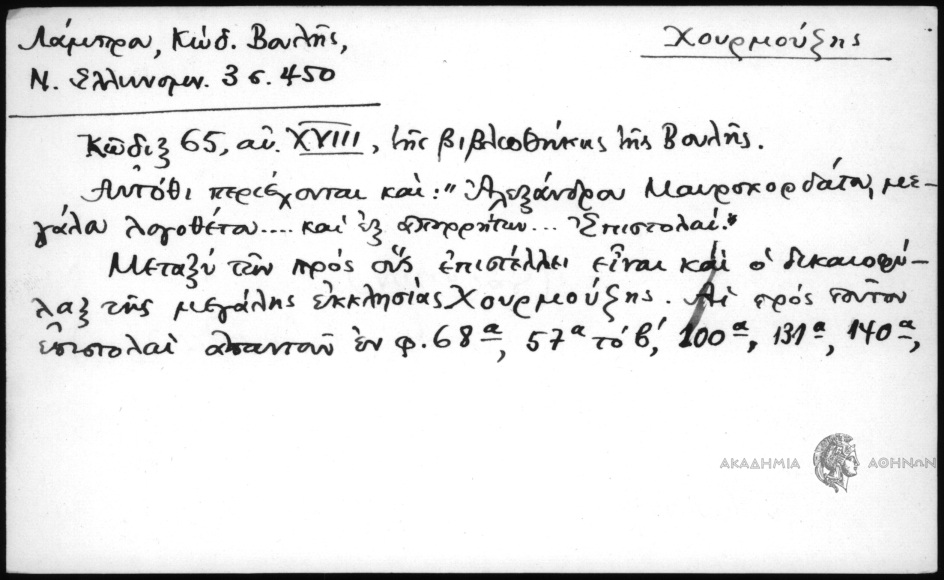 Λάμπρου, Κώδ. Βουλῆς,
Ν. Ἑλληνομν. 3 σ. 450
Χουρμούζης
Κῶδιξ 65, αἰ. XVIII, τῆς βιβλιοθήκης τῆς Βουλῆς.
Αὐτόθι περιέχονται καί: "Ἀλεξάνδρου Μαυροκορδάτου, με-
γάλου λογοθέτου.... καὶ ἐξ ἀπορρήτων... Ἐπιστολαί."
Μεταξὺ τῶν πρὸς οὓς ἐπιστέλλει εἶναι καὶ ὁ δικαιοφύ-
λαξ τῆς μεγάλης ἐκκλησίας Χουρμούζης. Αἱ πρὸς τοῦτον
ἐπιστολαὶ ἀπαντοῦν ἐν φ. 68α, 57α τὸ β΄, 100α, 131α, 140α,
ΑΚΑΔΗΜΙΑ ΑΘΗΝΩΝ